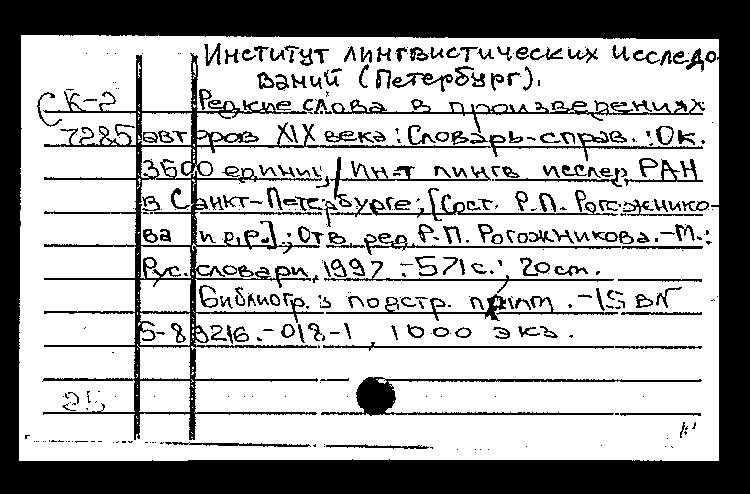 Институт лингвистических исследо
ваний (Петербург).
К-2 Редкие слова в произведениях
7285 авторов XIX века: Словарь-справ. : Ок.
3600 единиц / Ин-т лингв. исслед. РАН
в Санкт-Петербурге; [Сост. Р.П. Рогожнико-
ва и др.]; Отв. ред. Р.П. Рогожникова. -М.:
Рус. словари, 1997. -571с.; 20см.
Библиогр. в подстр. прим. -ISBN
5-89216-018-1, 1000 экз.
25